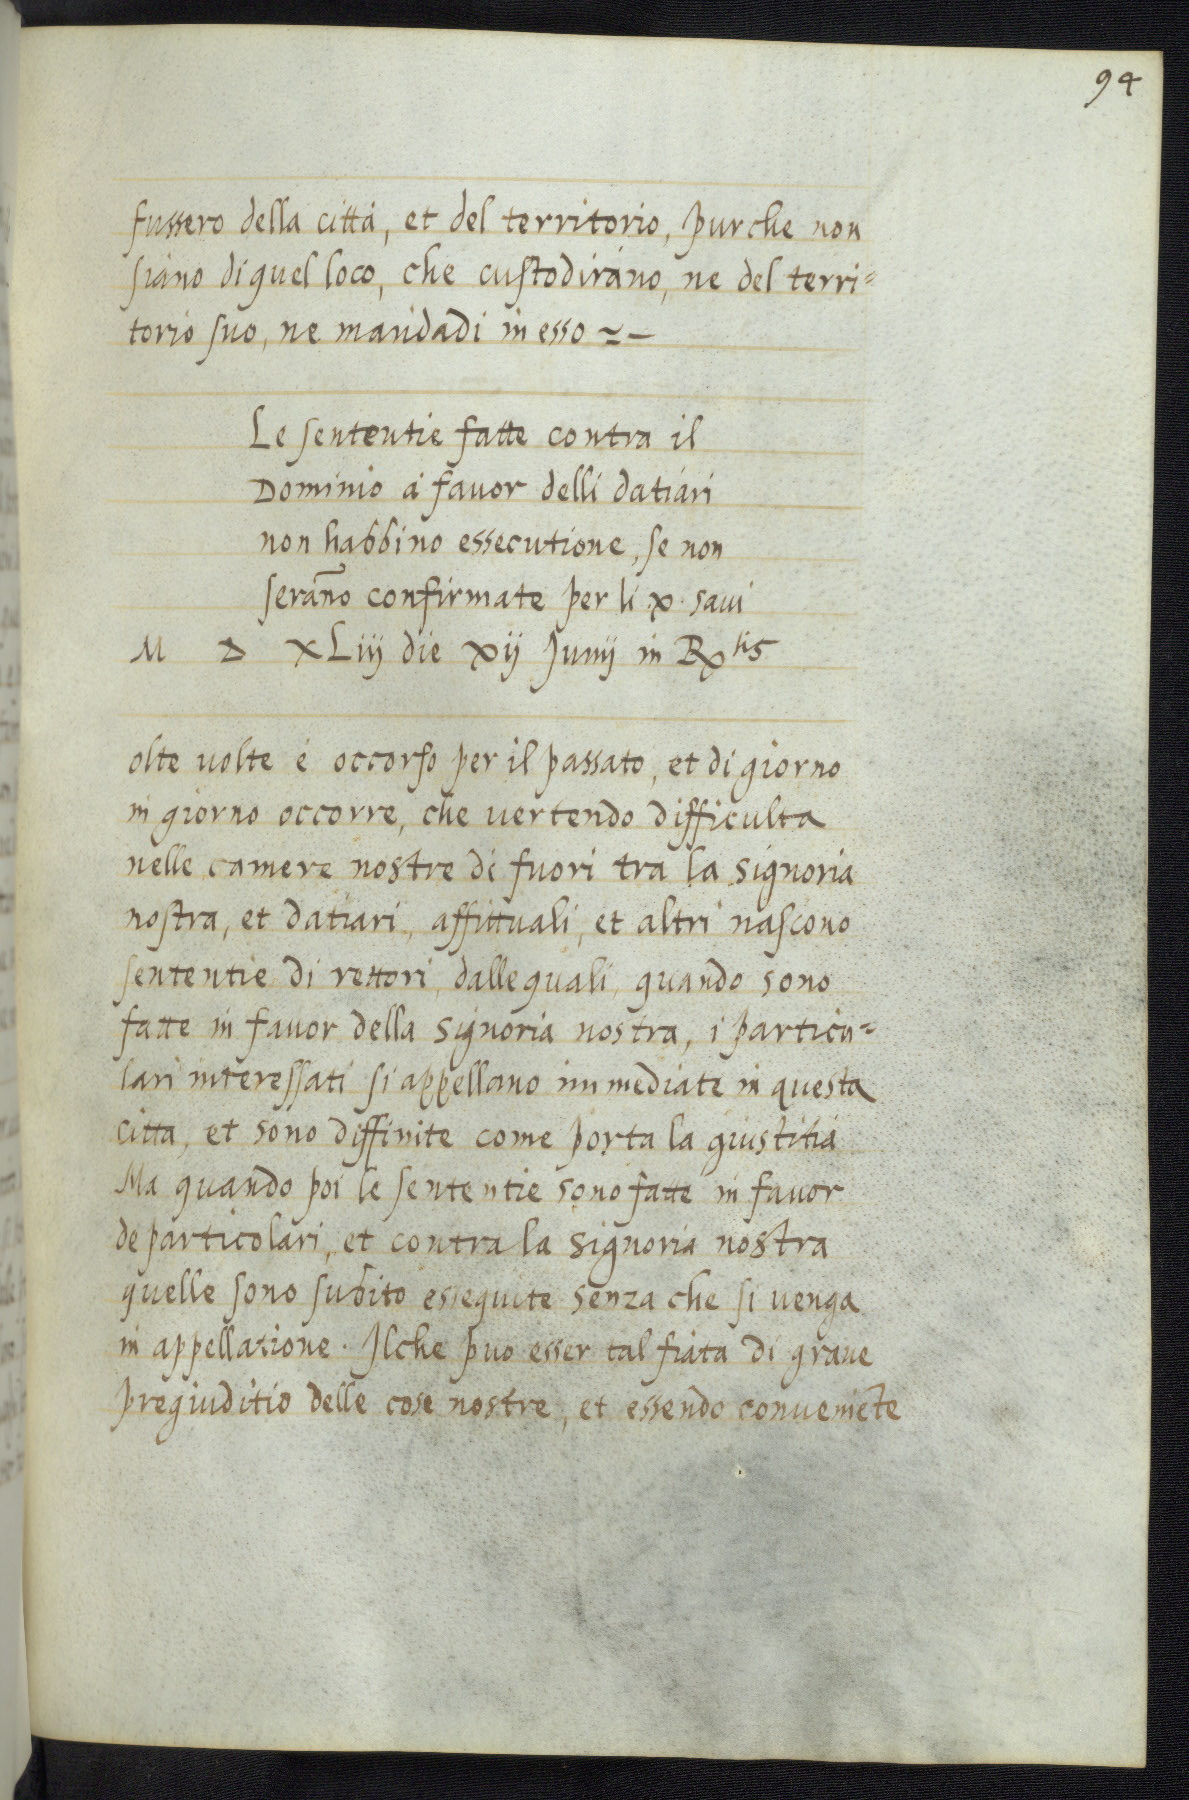 94
fussero della città, et del territorio, purche non
siano di quel loco, che custodirano, ne del terri=
torio suo, ne maridadi in esso ~ —
Le sententie fatte contra il
Dominio à favor delli datiari
non habbino essecutione, se non
serãno confirmate per li x savi
M D XLiij die xij Junij in Rxtis
olte volte è occorso per il passato, et di giorno
in giorno occorre, che vertendo difficulta
nelle camere nostre di fuori tra la Signoria
nostra, et datiari, affittuali, et altri nascono
sententie di rettori, dalle quali, quando sono
fatte in favor della Signoria nostra, i particu=
lari interessati si appellano immediate in questa
citta, et sono diffinite come porta la giustitia
Ma quando poi le sententie sono fatte in favor
de particolari, et contra la Signoria nostra
quelle sono subito essequite senza che si venga
in appellatione. Ilche puo esser tal fiata di grave
pregiuditio delle cose nostre, et essendo conveniẽte